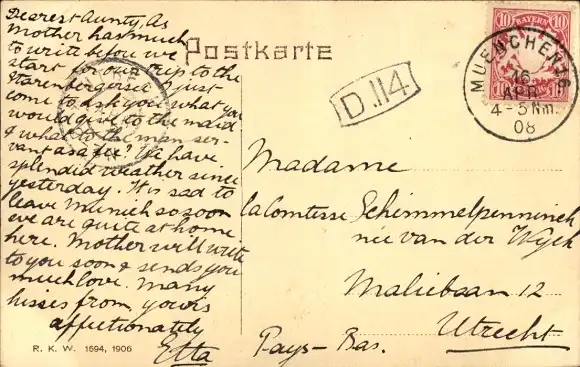 Dearest Aunty, As
Mother has much
to write before we
start for our trip to the
Starenbergersee I just
come to ask you what you
would give to the maid
& what to the man ser-
vant as a fee? We have
splendid weather since
yesterday. It is sad to
leave Munich so soon
we are quite at home
here. Mother will write
to you soon & sends you
much love. Many
kisses from yours
affectionately
Etta
R. K. W. 1694, 1906
Postkarte
D.114
10 BAYERN 10
MUENCHEN
16
APR.
4-5 Nm.
08
Madame
la Comtesse Schimmelpenninck
née van der Wyck
Maliebaan 12
Utrecht
Pays-Bas.